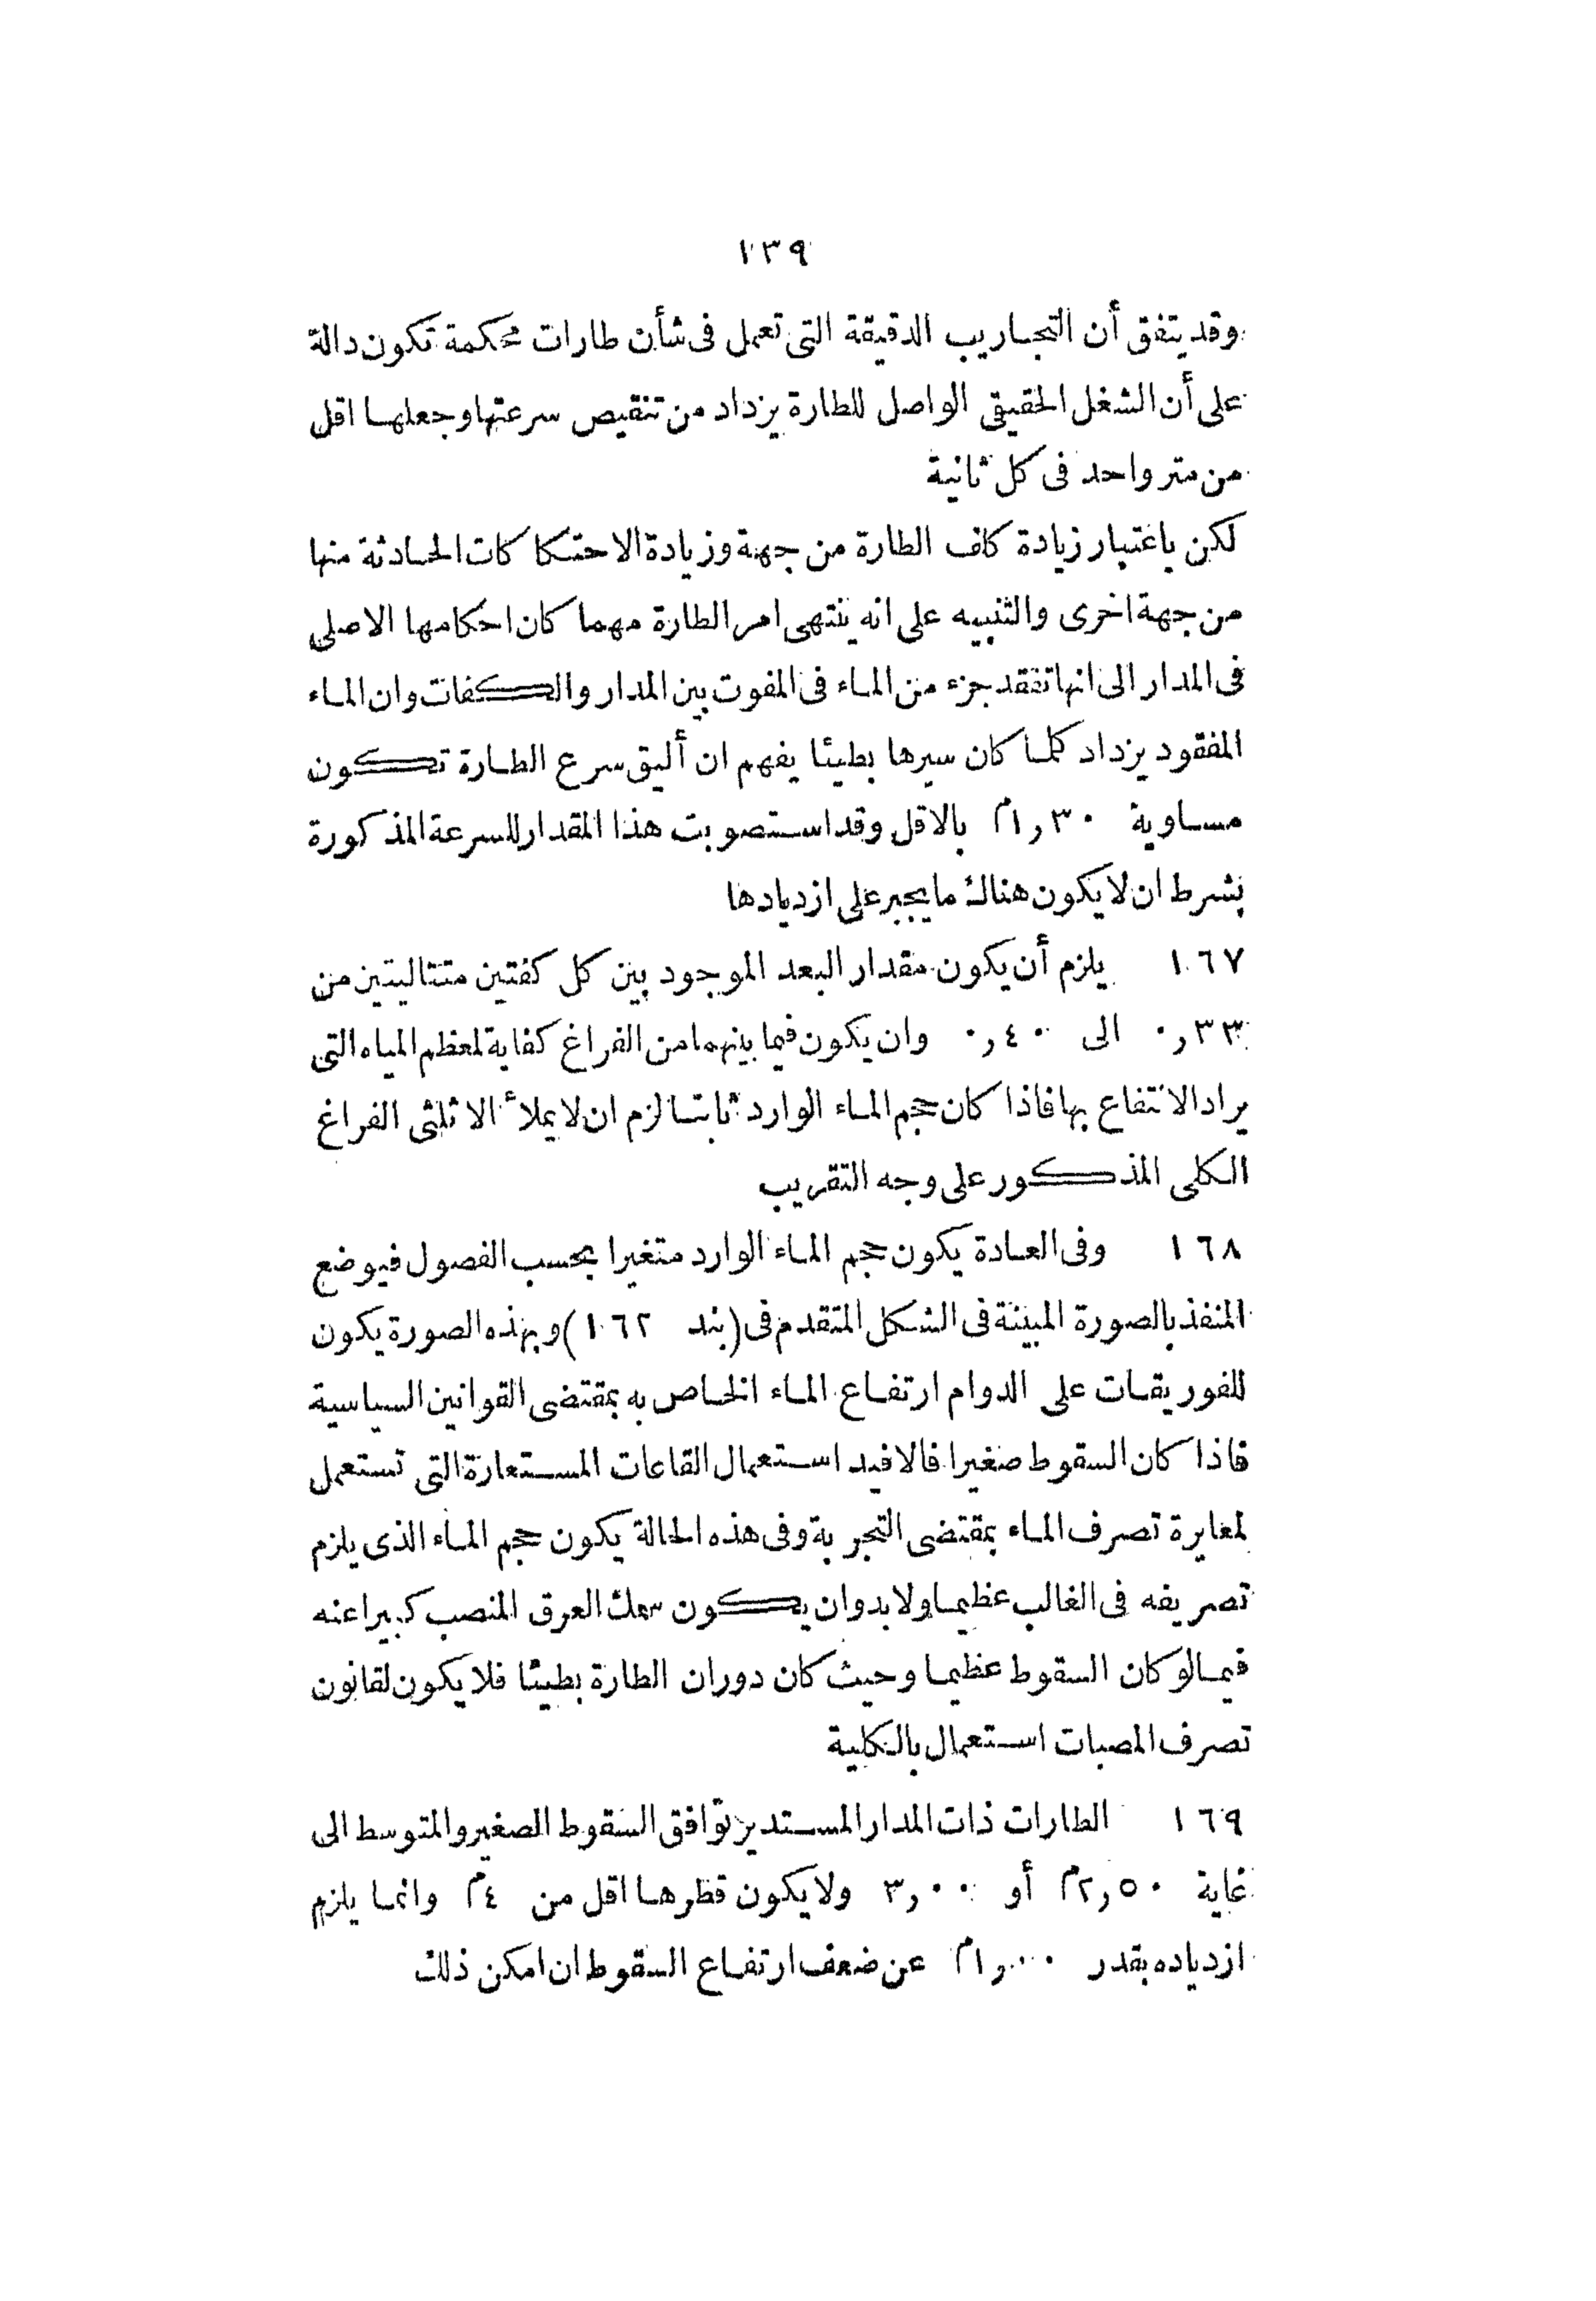 ١٣٩
وقد يتفق أن التجاريب الدقيقة التى تعمل فى شأن طارات محكمة تكون دالة
على أن الشغل الحقيقى الواصل للطارة يزداد من تنقيص سرعتها وجعلها اقل
من متر واحد فى كل ثانية
لكن باعتبار زيادة كاف الطارة من جهة وزيادة الاحتكاكات الحادثة منها
من جهة اخرى والتنبيه على انه ينتهى امر الطارة مهما كان احكامها الاصلى
فى المدار الى انها تفقد جزء من الماء فى المفوت بين المدار والكفات وان الماء
المفقود يزداد كلما كان سيرها بطيئا يفهم ان أليق سرع الطارة تكون
مساوية ١٫٣٠م بالاقل وقد استصوبت هذا المقدار للسرعة المذكورة
بشرط ان لا يكون هناك ما يجبر على ازديادها
١٦٧ يلزم أن يكون مقدار البعد الموجود بين كل كفتين متتاليتين من
٠٫٣٣ الى ٠٫٤٠ وان يكون فيما بينهما من الفراغ كفاية لمعظم المياه التى
يراد الانتفاع بها فاذا كان حجم الماء الوارد ثابتا لزم ان لا يملأ الا ثلثى الفراغ
الكلى المذكور على وجه التقريب
١٦٨ وفى العادة يكون حجم الماء الوارد متغيرا بحسب الفصول فيوضع
المنفذ بالصورة المبينة فى الشكل المتقدم فى (بند ١٦٢) وبهذه الصورة يكون
للفوريقات على الدوام ارتفاع الماء الخاص به بمقتضى القوانين السياسية
فاذا كان السقوط صغيرا فالافيد استعمال القاعات المستعارة التى تستعمل
لمعايرة تصرف الماء بمقتضى التجربة وفى هذه الحالة يكون حجم الماء الذى يلزم
تصريفه فى الغالب عظيما ولابدوان يكون سمك العرق المنصب كبيرا عنه
فيما لو كان السقوط عظيما وحيث كان دوران الطارة بطيئا فلا يكون لقانون
تصرف المصبات استعمال بالكلية
١٦٩ الطارات ذات المدار المستدير توافق السقوط الصغير والمتوسط الى
غاية ٢٫٥٠م أو ٣٫٠٠ ولا يكون قطرها اقل من ٤م وانما يلزم
ازدياده بقدر ١٫٠٠م عن ضعف ارتفاع السقوط ان امكن ذلك